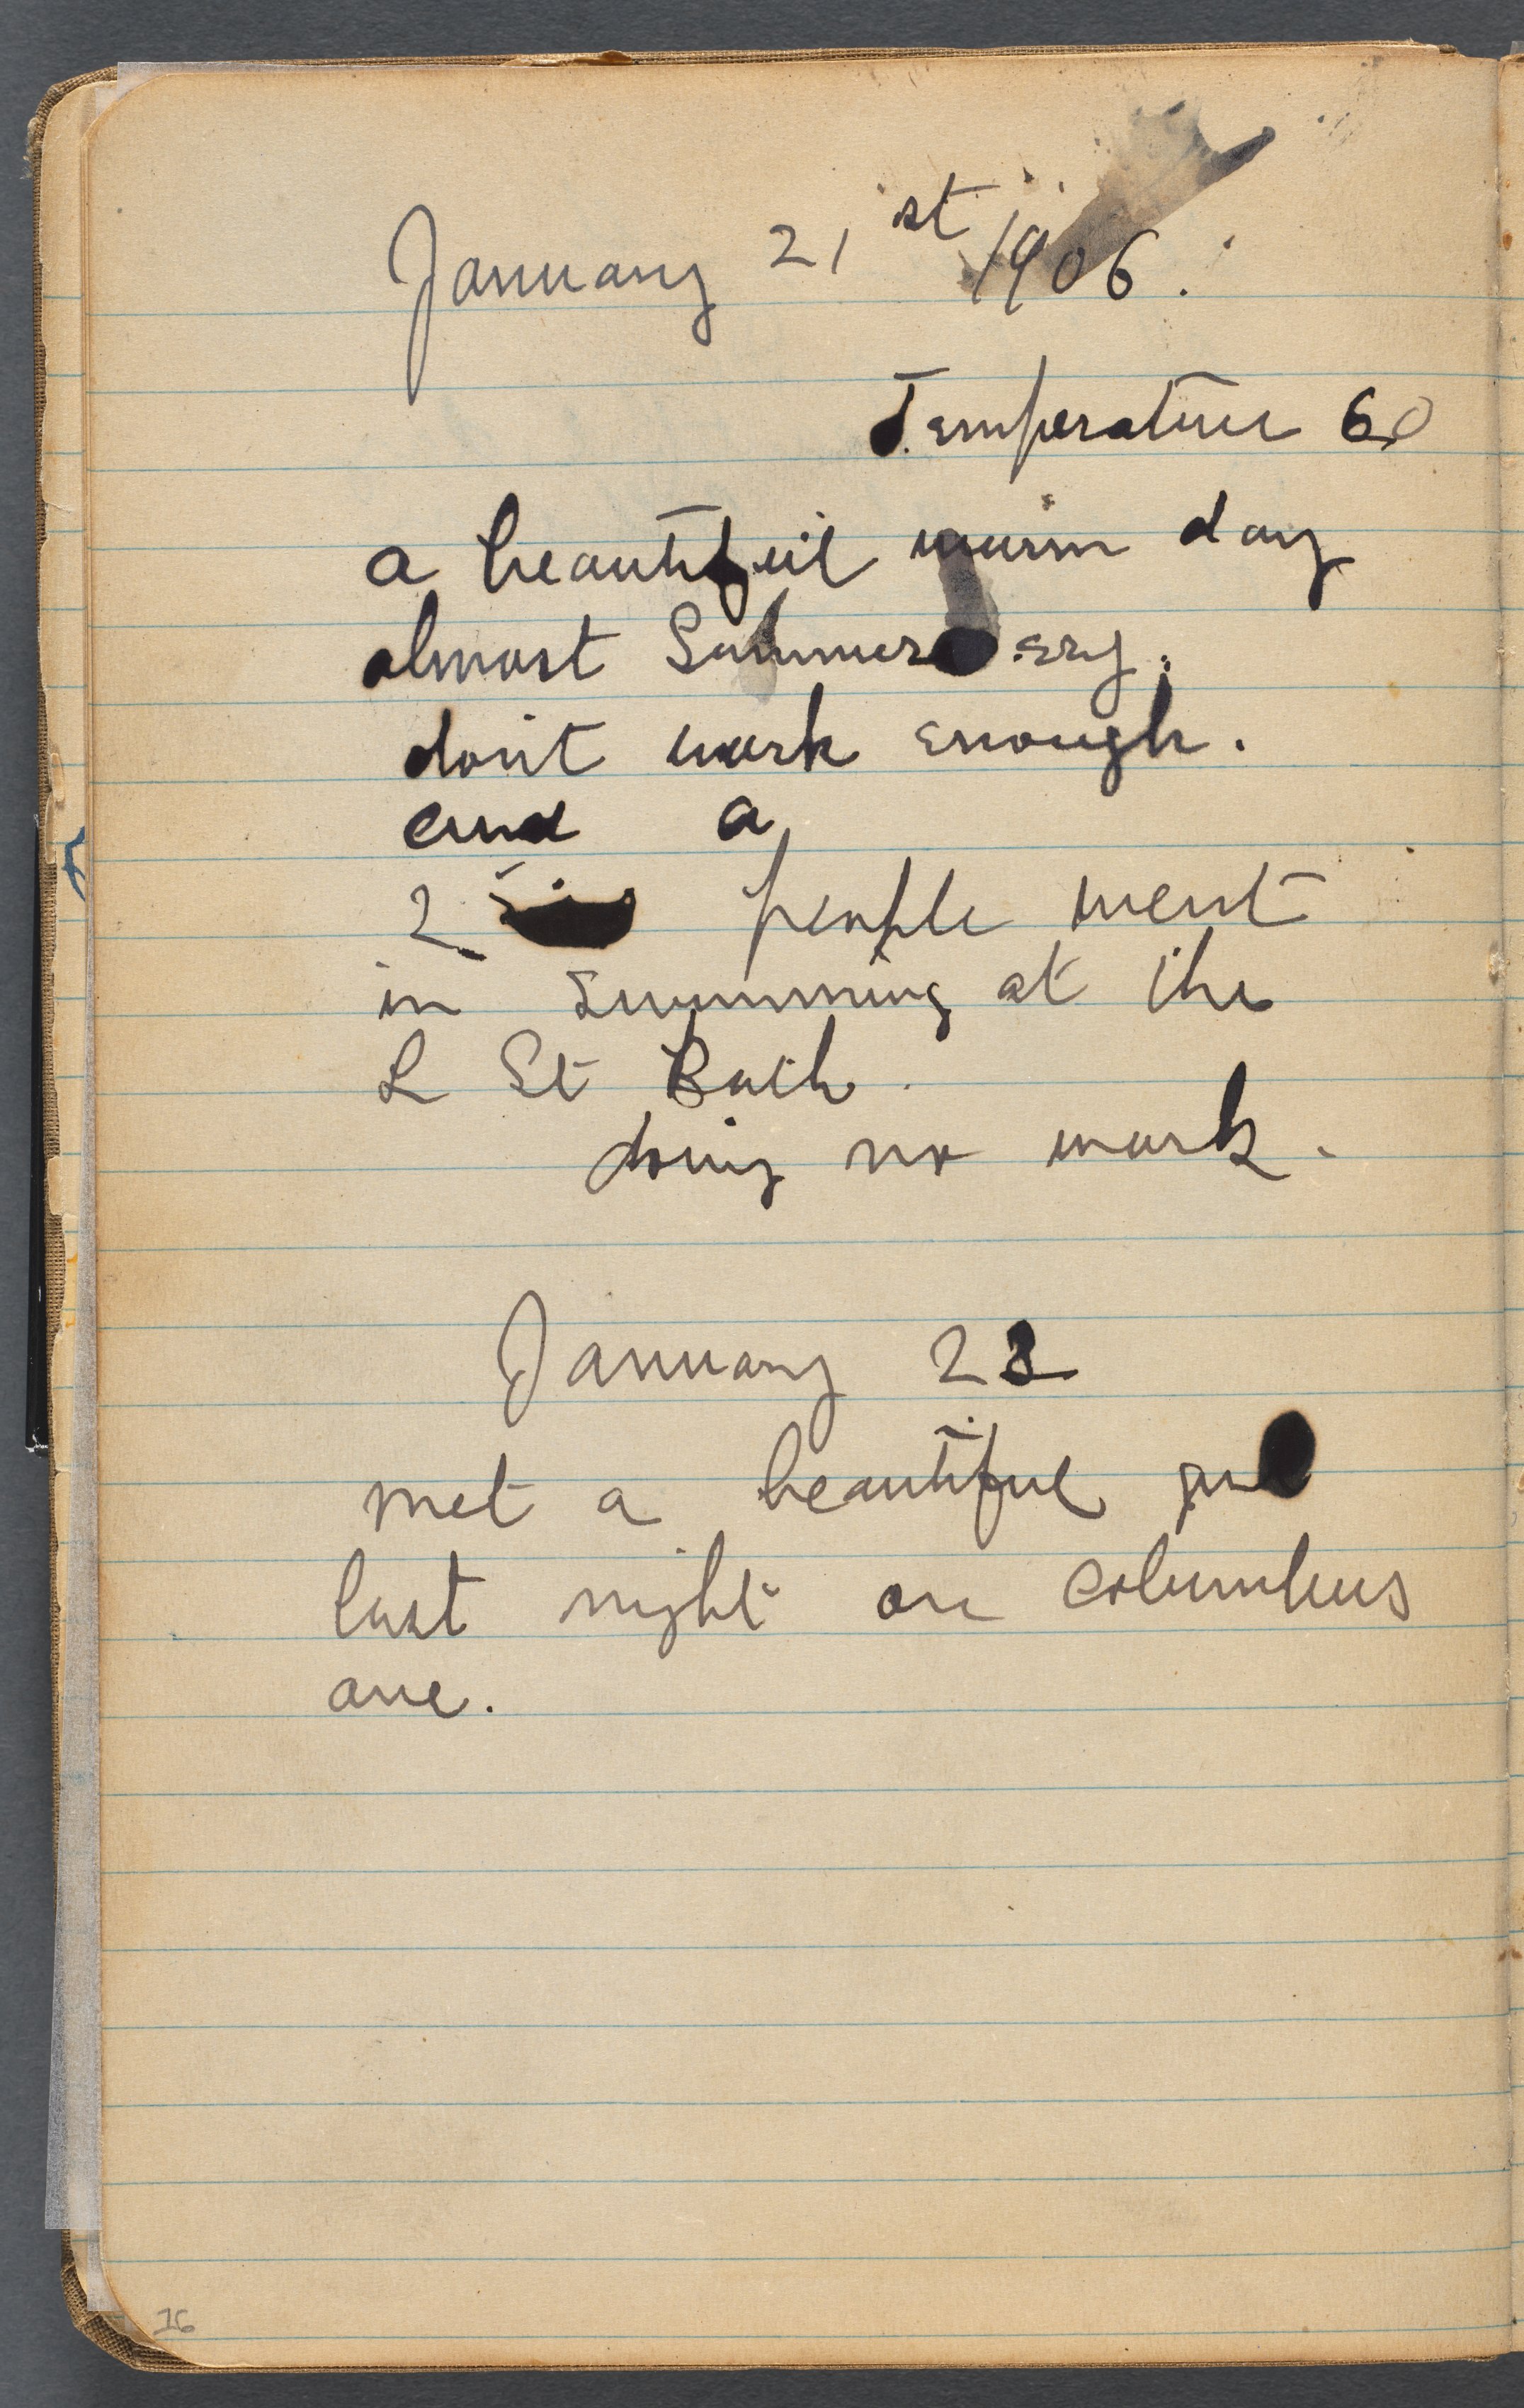 January 21st 1906.
Temperature 60
a beautiful warm day
almost Summer ery.
don't work enough.
and a
2 people went
in swimming at the
L St Bath.
doing no work.
January 22
met a beautiful girl
last night on Columbus
ave.
16